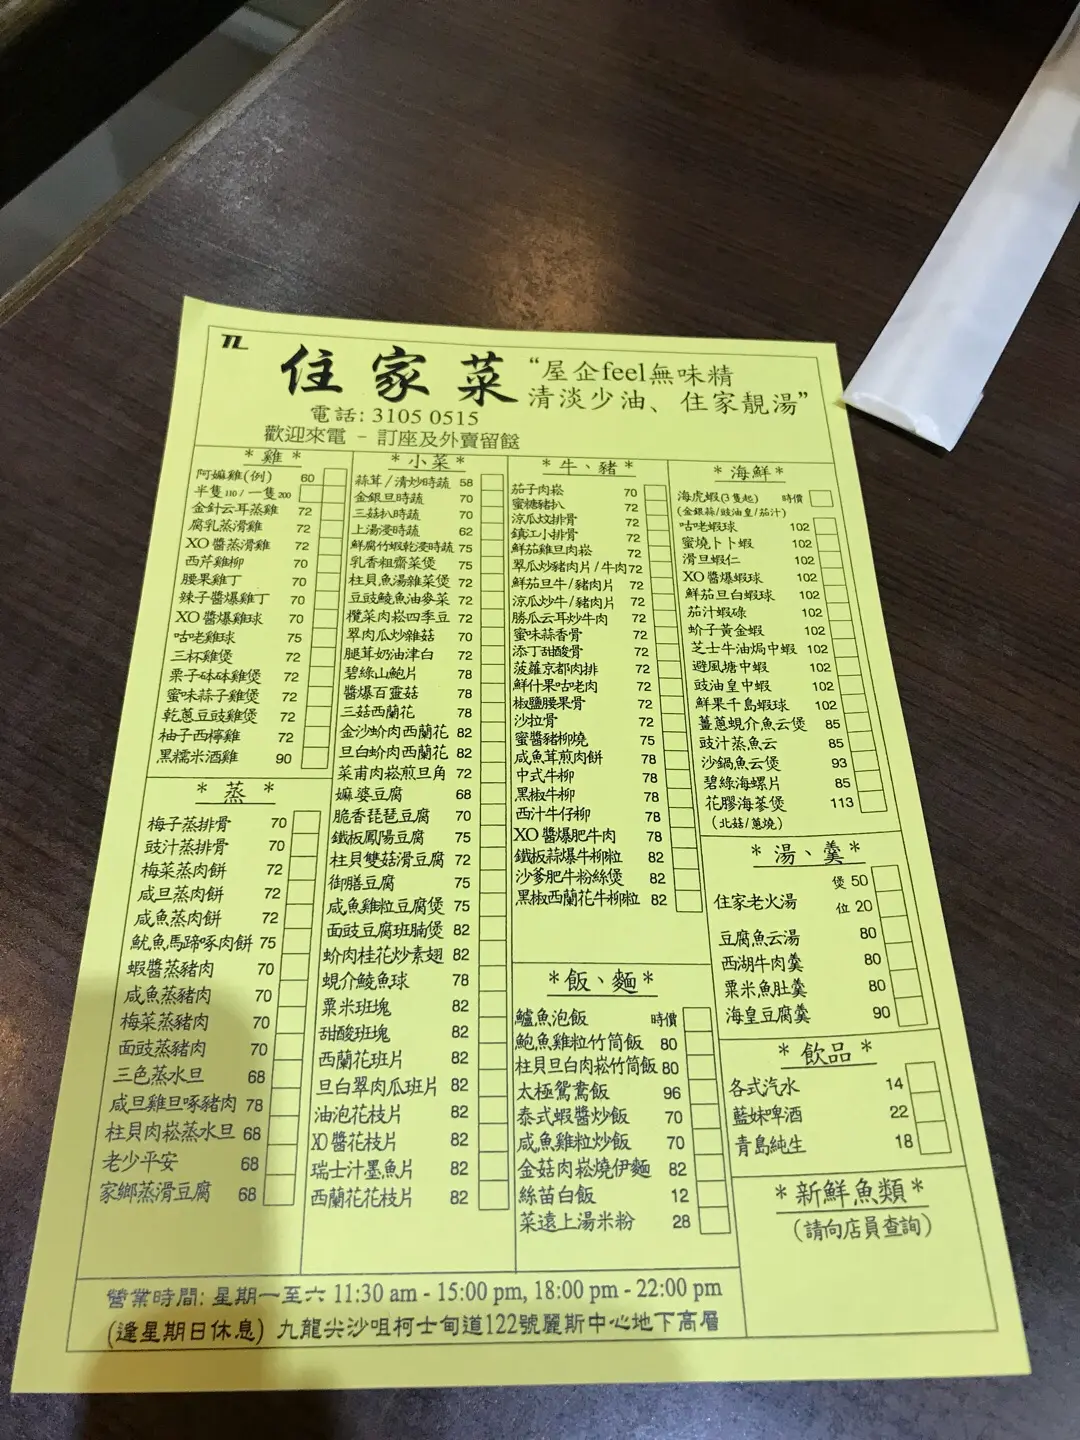 TL
住家菜
“屋企feel無味精
清淡少油、住家靚湯”
電話: 3105 0515
歡迎來電 - 訂座及外賣留餸
* 雞 *
阿嫲雞(例) 60
半隻110 / 一隻200
金針云耳蒸雞 72
腐乳蒸滑雞 72
XO醬蒸滑雞 72
西芹雞柳 70
腰果雞丁 70
辣子醬爆雞丁 70
XO醬爆雞球 70
咕老雞球 75
三杯雞煲 72
栗子砵砵雞煲 72
蜜味蒜子雞煲 72
乾蔥豆豉雞煲 72
柚子西檸雞 72
黑糯米酒雞 90
* 蒸 *
梅子蒸排骨 70
豉汁蒸排骨 70
梅菜蒸肉餅 72
咸旦蒸肉餅 72
咸魚蒸肉餅 72
魷魚馬蹄啄肉餅 75
蝦醬蒸豬肉 70
咸魚蒸豬肉 70
梅菜蒸豬肉 70
面豉蒸豬肉 70
三色蒸水旦 68
咸旦雞旦啄豬肉 78
柱貝肉崧蒸水旦 68
老少平安 68
家鄉蒸滑豆腐 68
* 小菜 *
蒜茸/清炒時蔬 58
金銀旦時蔬 70
三菇扒時蔬 70
上湯浸時蔬 62
鮮腐竹蝦乾浸時蔬 75
乳香粗齋菜煲 75
柱貝魚湯雜菜煲 72
豆豉鯪魚油麥菜 72
欖菜肉崧四季豆 72
翠肉瓜炒雜菇 70
腿茸奶油津白 72
碧綠山鮑片 78
醬爆百靈菇 78
三菇西蘭花 78
金沙蚧肉西蘭花 82
旦白蚧肉西蘭花 82
菜甫肉崧煎旦角 72
嫲婆豆腐 68
脆香琵琶豆腐 70
鐵板鳳陽豆腐 75
柱貝雙菇滑豆腐 72
御膳豆腐 75
咸魚雞粒豆腐煲 75
面豉豆腐班腩煲 82
蚧肉桂花炒素翅 82
蜆介鯪魚球 78
粟米班塊 82
甜酸班塊 82
西蘭花班片 82
旦白翠肉瓜班片 82
油泡花枝片 82
XO醬花枝片 82
瑞士汁墨魚片 82
西蘭花花枝片 82
* 牛、豬 *
茄子肉崧 70
蜜糖豬扒 72
涼瓜炆排骨 72
鎮江小排骨 72
鮮茄雞旦肉崧 72
翠瓜炒豬肉片/牛肉 72
鮮茄旦牛/豬肉片 72
涼瓜炒牛/豬肉片 72
勝瓜云耳炒牛肉 72
蜜味蒜香骨 72
添丁甜酸骨 72
菠蘿京都肉排 72
鮮什果咕老肉 72
椒鹽腰果骨 72
沙拉骨 72
蜜醬豬柳燒 75
咸魚茸煎肉餅 78
中式牛柳 78
黑椒牛柳 78
西汁牛仔柳 78
XO醬爆肥牛肉 78
鐵板蒜爆牛柳粒 82
沙爹肥牛粉絲煲 82
黑椒西蘭花牛柳粒 82
*飯、麵*
鱸魚泡飯 時價
鮑魚雞粒竹筒飯 80
柱貝旦白肉崧竹筒飯 80
太極鴛鴦飯 96
泰式蝦醬炒飯 70
咸魚雞粒炒飯 70
金菇肉崧燒伊麵 82
絲苗白飯 12
菜遠上湯米粉 28
* 海鮮 *
海虎蝦(3隻起) 時價
(金銀蒜/豉油皇/茄汁)
咕老蝦球 102
蜜燒卜卜蝦 102
滑旦蝦仁 102
XO醬爆蝦球 102
鮮茄旦白蝦球 102
茄汁蝦碌 102
蚧子黃金蝦 102
芝士牛油焗中蝦 102
避風塘中蝦 102
豉油皇中蝦 102
鮮果千島蝦球 102
薑蔥蜆介魚云煲 85
豉汁蒸魚云 85
沙鍋魚云煲 93
碧綠海螺片 85
花膠海蔘煲 113
(北菇/蔥燒)
* 湯、羹 *
煲 50
住家老火湯 位 20
豆腐魚云湯 80
西湖牛肉羹 80
粟米魚肚羹 80
海皇豆腐羹 90
* 飲品 *
各式汽水 14
藍妹啤酒 22
青島純生 18
*新鮮魚類*
(請向店員查詢)
營業時間: 星期一至六 11:30 am - 15:00 pm, 18:00 pm - 22:00 pm
(逢星期日休息) 九龍尖沙咀柯士甸道122號麗斯中心地下高層